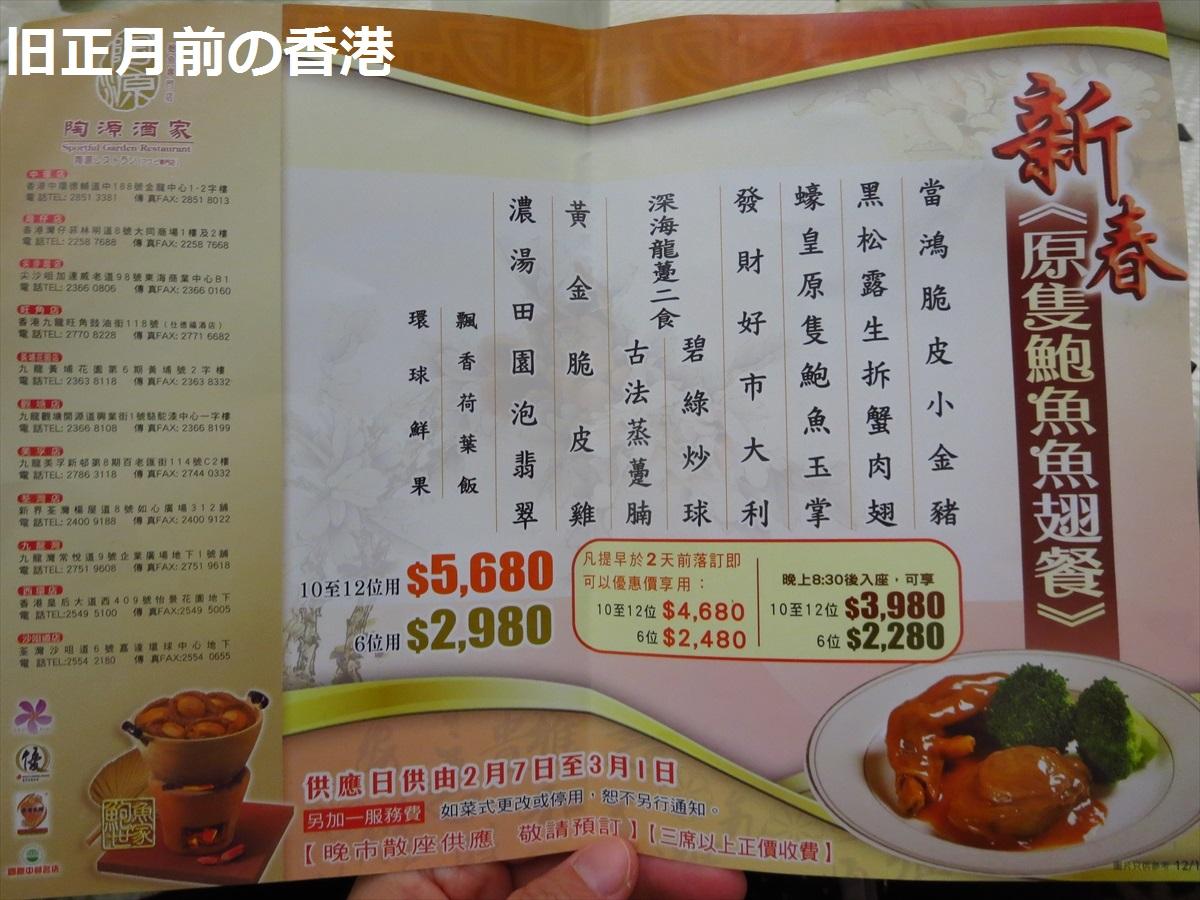 旧正月前の香港
陶源酒家
Sportful Garden Restaurant
中環店
香港中環德輔道中188號金龍中心1-2字樓
電話TEL: 2851 3381 傳真FAX: 2851 8013
灣仔店
香港灣仔菲林明道8號大同商場1樓及2樓
電話TEL: 2258 7688 傳真FAX: 2258 7668
尖沙咀加連威老道98號東海商業中心B1
電話TEL: 2366 0806 傳真FAX: 2366 0160
旺角店
香港九龍旺角豉油街118號（仕德福酒店）
電話TEL: 2770 8228 傳真FAX: 2771 6682
九龍黃埔花園第6期黃埔號2字樓
電話TEL: 2363 8118 傳真FAX: 2363 8332
觀塘店
九龍觀塘開源道興業街1號駱駝漆中心一字樓
電話TEL: 2366 8108 傳真FAX: 2366 8199
美孚店
九龍美孚新邨第8期百老匯街114號C2樓
電話TEL: 2786 3118 傳真FAX: 2744 0332
荃灣店
新界荃灣楊屋道8號如心廣場312鋪
電話TEL: 2400 9188 傳真FAX: 2400 9122
九龍灣
九龍灣常悅道9號企業廣場地下1號舖
電話TEL: 2751 9608 傳真FAX: 2751 9618
西環店
香港皇后大道西409號怡景花園地下
電話TEL:2549 5100 傳真FAX:2549 5005
沙咀道店
荃灣沙咀道6號嘉達環球中心地下
電話TEL:2554 2180 傳真FAX:2554 0655
優
鮑魚世家
新春
《原隻鮑魚魚翅餐》
當鴻脆皮小金豬
黑松露生拆蟹肉翅
蠔皇原隻鮑魚玉掌
發財好市大利
深海龍躉二食
碧綠炒球
古法蒸躉腩
黃金脆皮雞
濃湯田園泡翡翠
飄香荷葉飯
環球鮮果
10至12位用 $5,680
6位用 $2,980
凡提早於2天前落訂即
可以優惠價享用：
10至12位 $4,680
6位 $2,480
晚上8:30後入座，可享
10至12位 $3,980
6位 $2,280
供應日供由2月7日至3月1日
另加一服務費 如菜式更改或停用，恕不另行通知。
【晚市散座供應 敬請預訂】【三席以上正價收費】
圖片只供參考 12/1